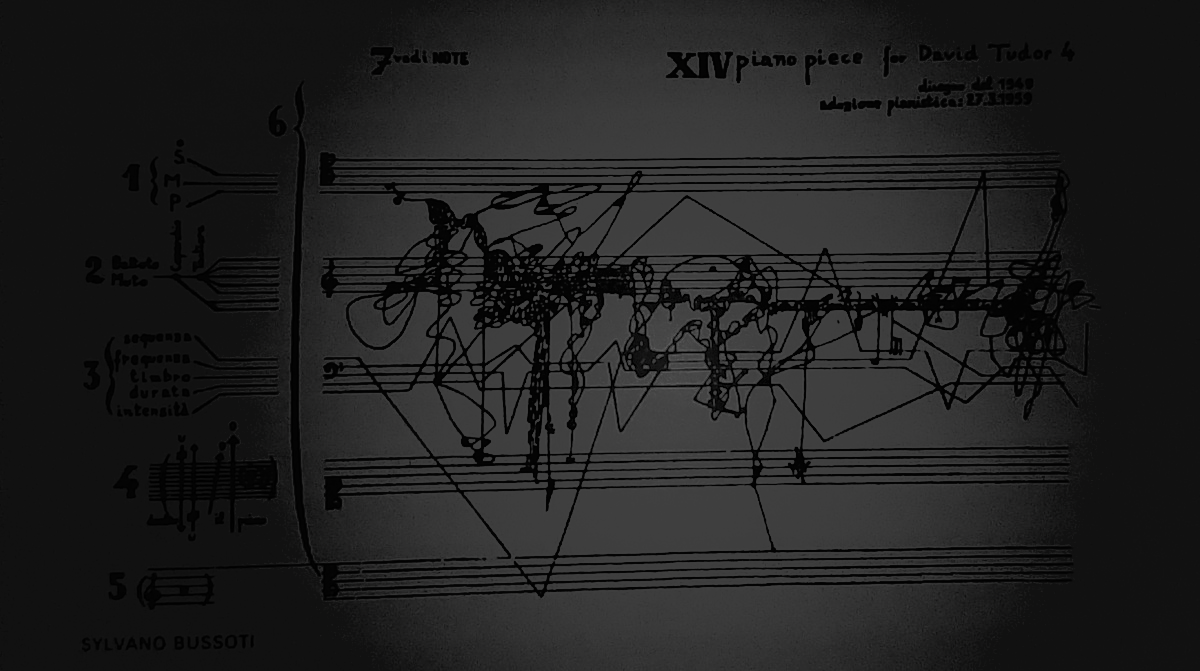 7 vedi: NOTE
XIV piano piece for David Tudor 4
disegno del 1949
adozione pianistica: 27.3.1959
6
1
S
M
P
2
3
sequenza
frequenza
timbro
durata
intensità
4
il piano
5
SYLVANO BUSSOTI